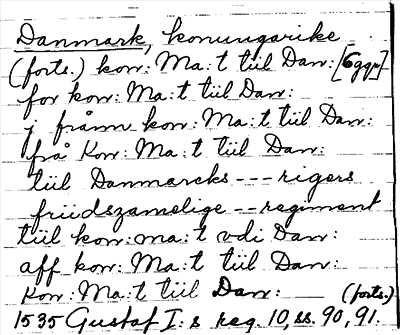 Danmark, konungarike
(forts.) kon: Ma:t tiil Dan: [6ggr]
for kon: Ma:t tiil Dan:
j frånn kon: Ma:t tiil Dan:
frå Kon: Ma:t tiil Dan:
tiil Danmarcks --- rigers
friidszamelige -- regiment
tiil kon: ma:t vdi Dan:
aff kon: Ma:t tiil Dan:
Kon: Ma:t tiil Dan: (forts.)
1535 Gustaf I:s reg. 10 ss. 90, 91.